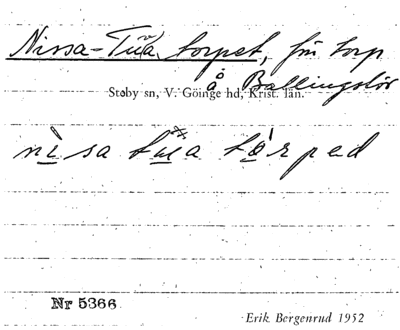 Nissa-Tuva torpet, fm torp
å Ballingslöv
Stoby sn, V. Göinge hd, Krist. län.
nìsa tua tòrped
Nr 5366
Erik Bergenrud 1952